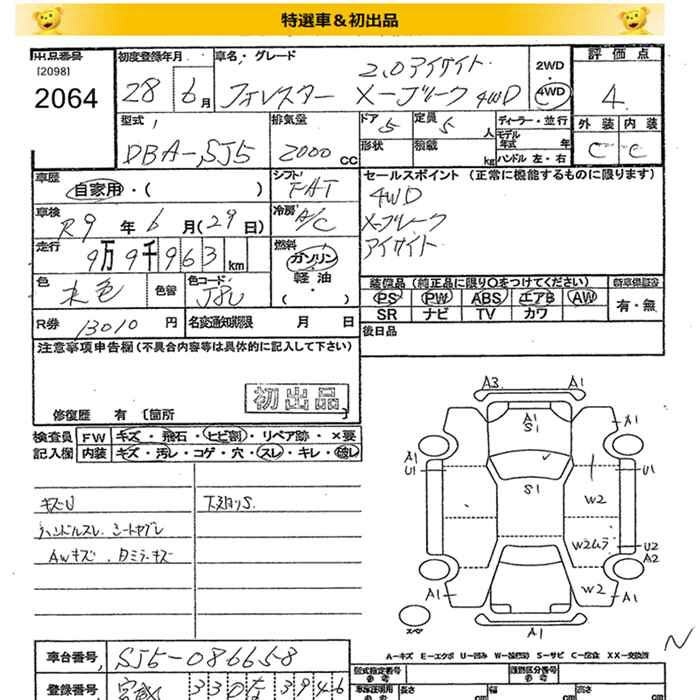 特選車＆初出品
出品番号
[2098]
2064
初度登録年月
28 6月
車名・グレード
2.0アイサイト
フォレスター X-ブレーク 4WD
2WD
・
4WD
評価点
4
外装 内装
C C
型式
DBA-SJ5
排気量
2000 cc
ドア 5
定員 5 人
形状
積載 kg
ディーラー・並行
モデル年式 年
ハンドル 左・右
車歴
自家用・( )
シフト
FAT
セールスポイント (正常に機能するものに限ります)
4WD
X-ブレーク
アイサイト
車検
R9年 6月(29日)
冷房
A/C
走行
9万9千963 km
燃料
ガソリン
軽油
・( )
色
茶色
色替
色コード
J8U
装備品 (純正品に限り○をつけてください)
PS PW ABS エアB AW
SR ナビ TV カワ
新車保証書
有・無
R券 13010 円
名変通知期限 月 日
後日品
注意事項申告欄(不具合内容等は具体的に記入して下さい)
初出品
修復歴 有 [箇所 ]
検査員記入欄
FW キズ・飛石・ヒビ割・リペア跡・×要
内装 キズ・汚レ・コゲ・穴・スレ・キレ・破レ
キズU
下スリS
ハンドルスレ シートヤブレ
AWキズ . ミラーキズ
A3 A1
A1
S1
A1
A1
U1
U1
S1
W2
W2ムラ
U2
A2
W2
A1
A1
A1
スペア
A－キズ E－エクボ U－凹み W－波(修) S－サビ C－腐食 XX－交換済
N
車台番号 SJ5-086658
登録番号 宮城 330 な 3946
型式指定番号
類別区分番号
参考
長さ cm
幅 cm
高さ cm